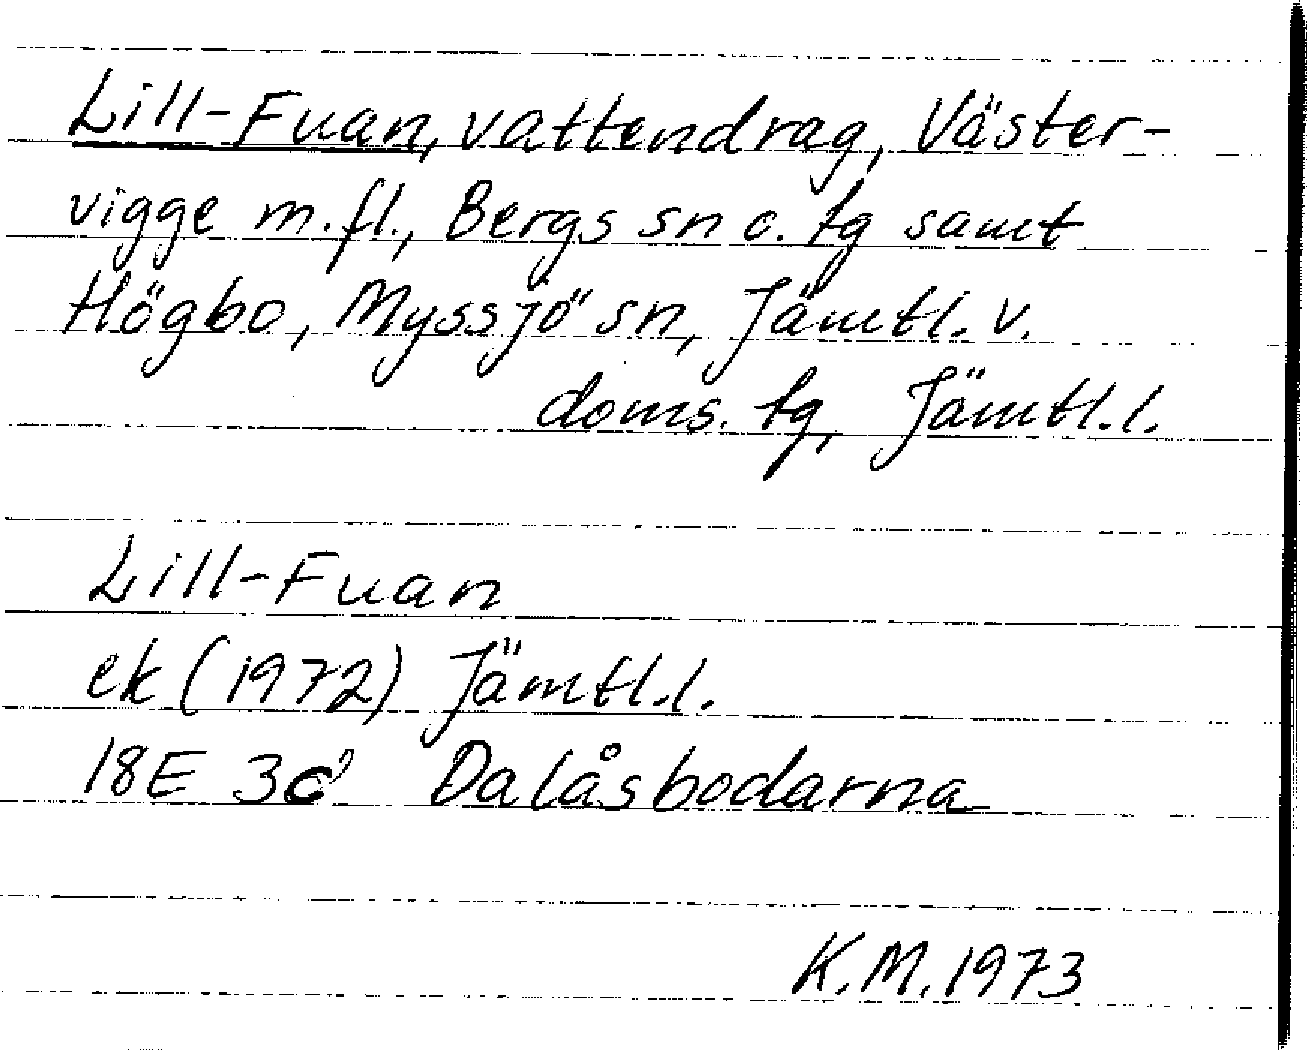 Lill-Fuan, vattendrag, Väster-
vigge m.fl., Bergs sn o. tg samt
Högbo, Myssjö sn, Jämtl. v.
doms. tg, Jämtl.l.
Lill-Fuan
ek (1972) Jämtl.l.
18E 3c Dalåsbodarna
K.M. 1973